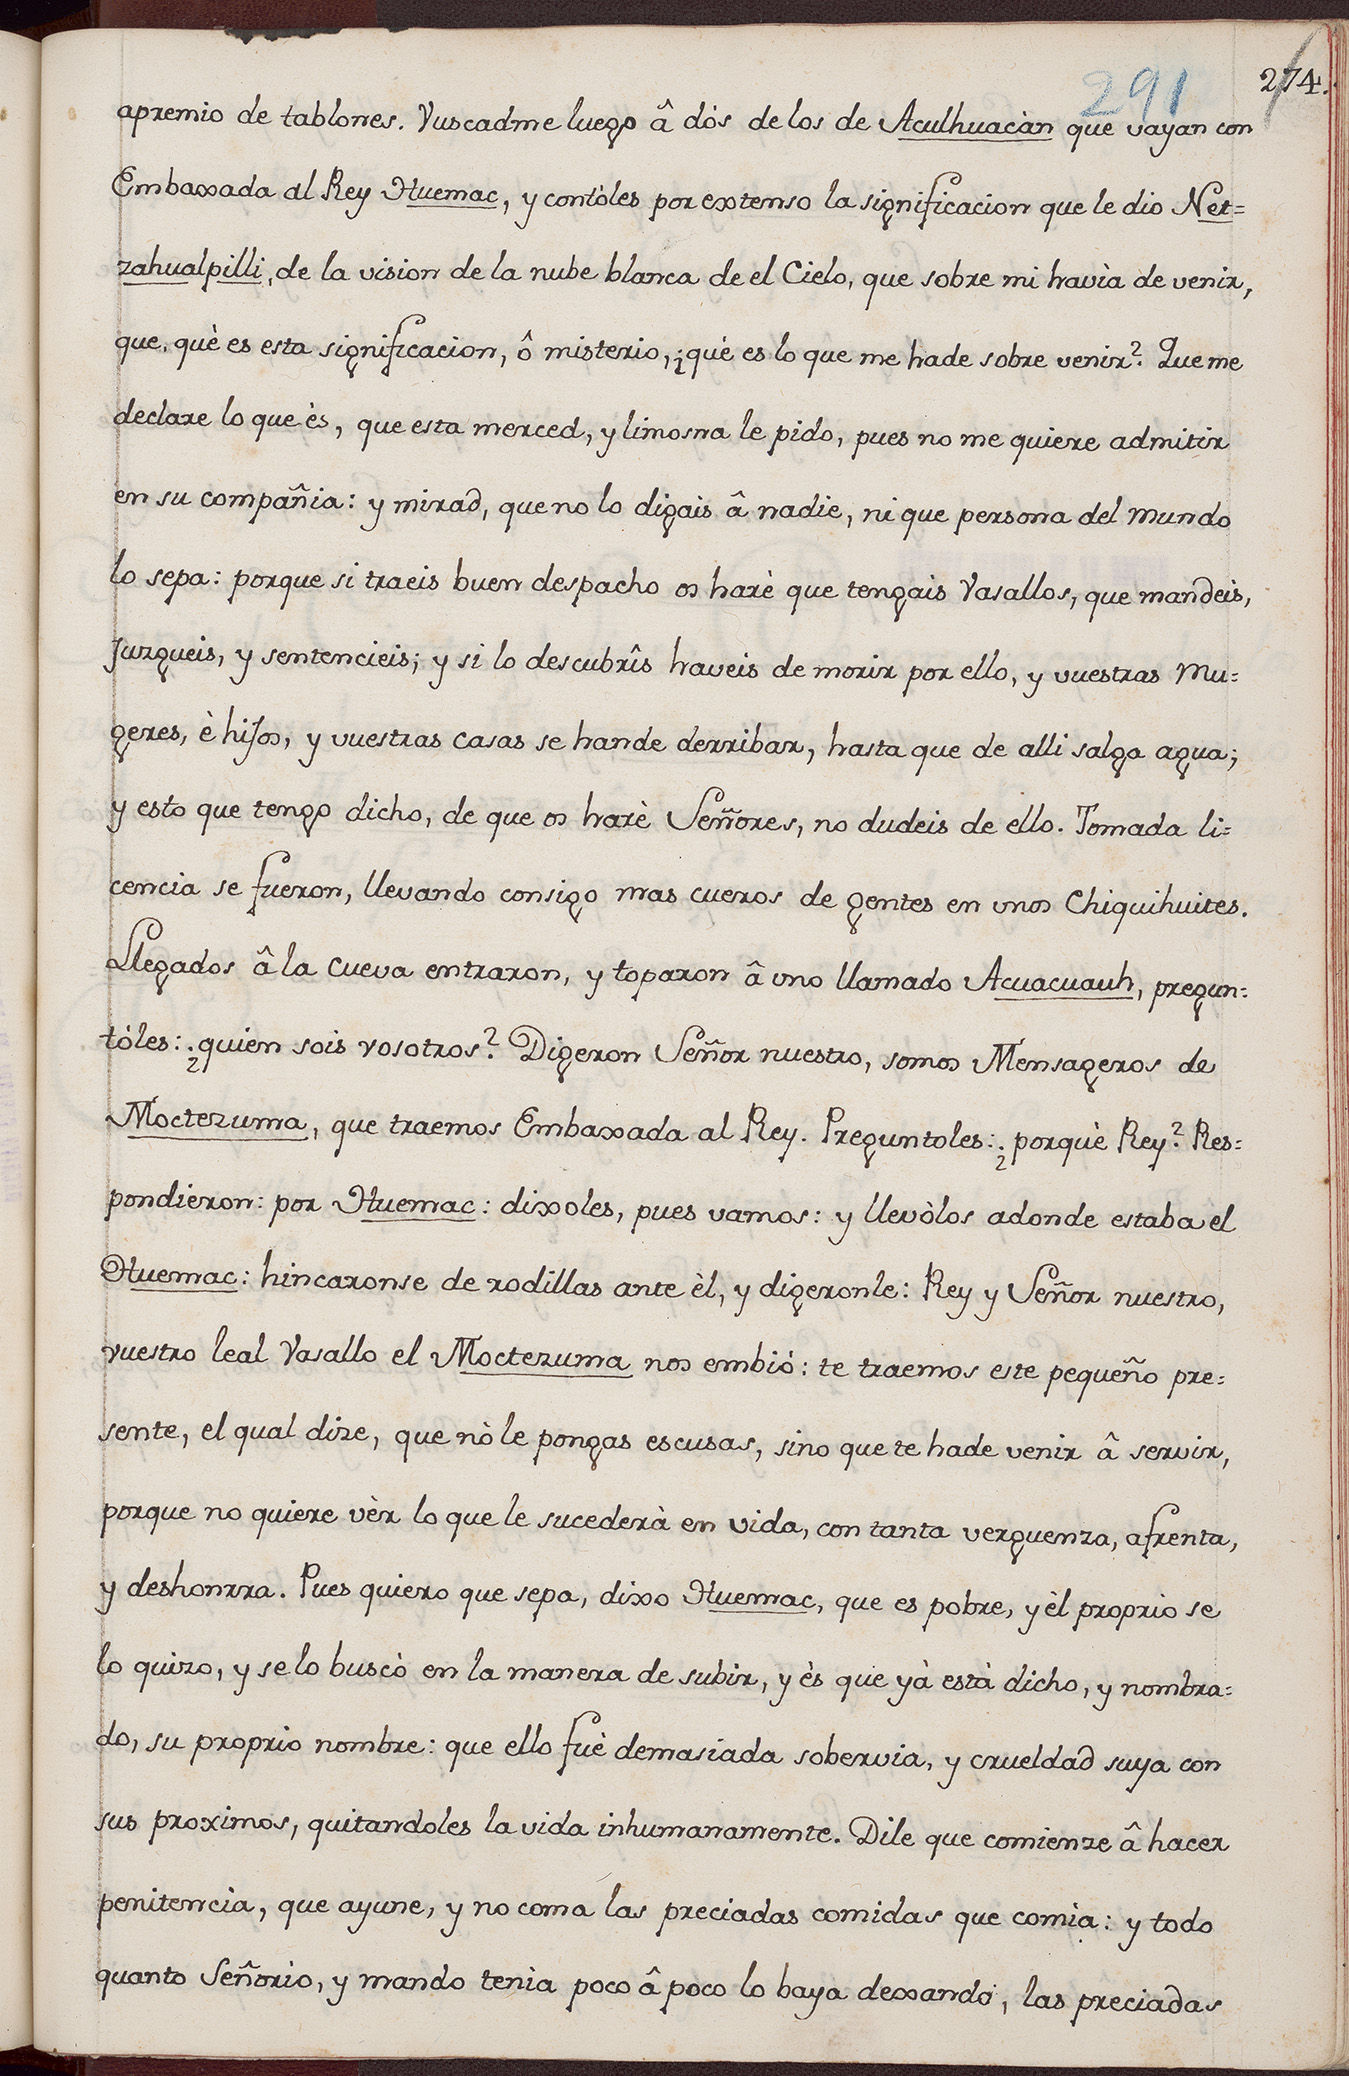 291
274.
apremio de tablones. Vuscadme luego â dòs de los de Aculhuacàn que vayan con
Embaxada al Rey Huemac, y contòles por extenso la significacion que le dio Net=
zahualpilli, de la vision de la nube blanca de el Cielo, que sobre mi havìa de venir,
que, què es esta significacion, ô misterio, ¿què es lo que me hade sobre venir? Que me
declare lo que ès, que esta merced, y limosna le pido, pues no me quiere admitir
en su compañia: y mirad, que no lo digais â nadie, ni que persona del mundo
lo sepa: porque si traeis buen despacho os harè que tengais Vasallos, que mandeis,
Juzgueis, y sentencieis; y si lo descubrîs haveis de morir por ello, y vuestras Mu=
geres, è hiJos, y vuestras casas se hande derribar, hasta que de alli salga agua;
y esto que tengo dicho, de que os harè Señores, no dudeis de ello. Tomada li=
cencia se fueron, llevando consigo mas cueros de gentes en unos Chiquihuites.
Llegados â la Cueva entraron, y toparon â uno llamado Acuacuauh, pregun=
tóles: ¿quien sois vosotros? Digeron Señor nuestro, somos Mensageros de
Moctezuma, que traemos Embaxada al Rey. Preguntoles: ¿porquè Rey? Res=
pondieron: por Huemac: dixoles, pues vamos: y llevòlos adonde estaba el
Huemac: hincaronse de rodillas ante èl, y digeronle: Rey y Señor nuestro,
vuestro leal Vasallo el Moctezuma nos embió: te traemos este pequeño pre=
sente, el qual dize, que nò le pongas escusas, sino que te hade venir â servir,
porque no quiere vèr lo que le sucederà en vida, con tanta verguenza, afrenta,
y deshonrra. Pues quiero que sepa, dixo Huemac, que es pobre, y èl proprio se
lo quizo, y se lo buscò en la manera de subir, y ès que yà està dicho, y nombra=
do, su proprio nombre: que ello fuè demasiada sobervia, y crueldad suya con
sus proximos, quitandoles la vida inhumanamente. Dile que comienze â hacer
penitencia, que ayune, y no coma las preciadas comidas que comìa: y todo
quanto Señorio, y mando tenìa poco â poco lo baya dexando, las preciadas